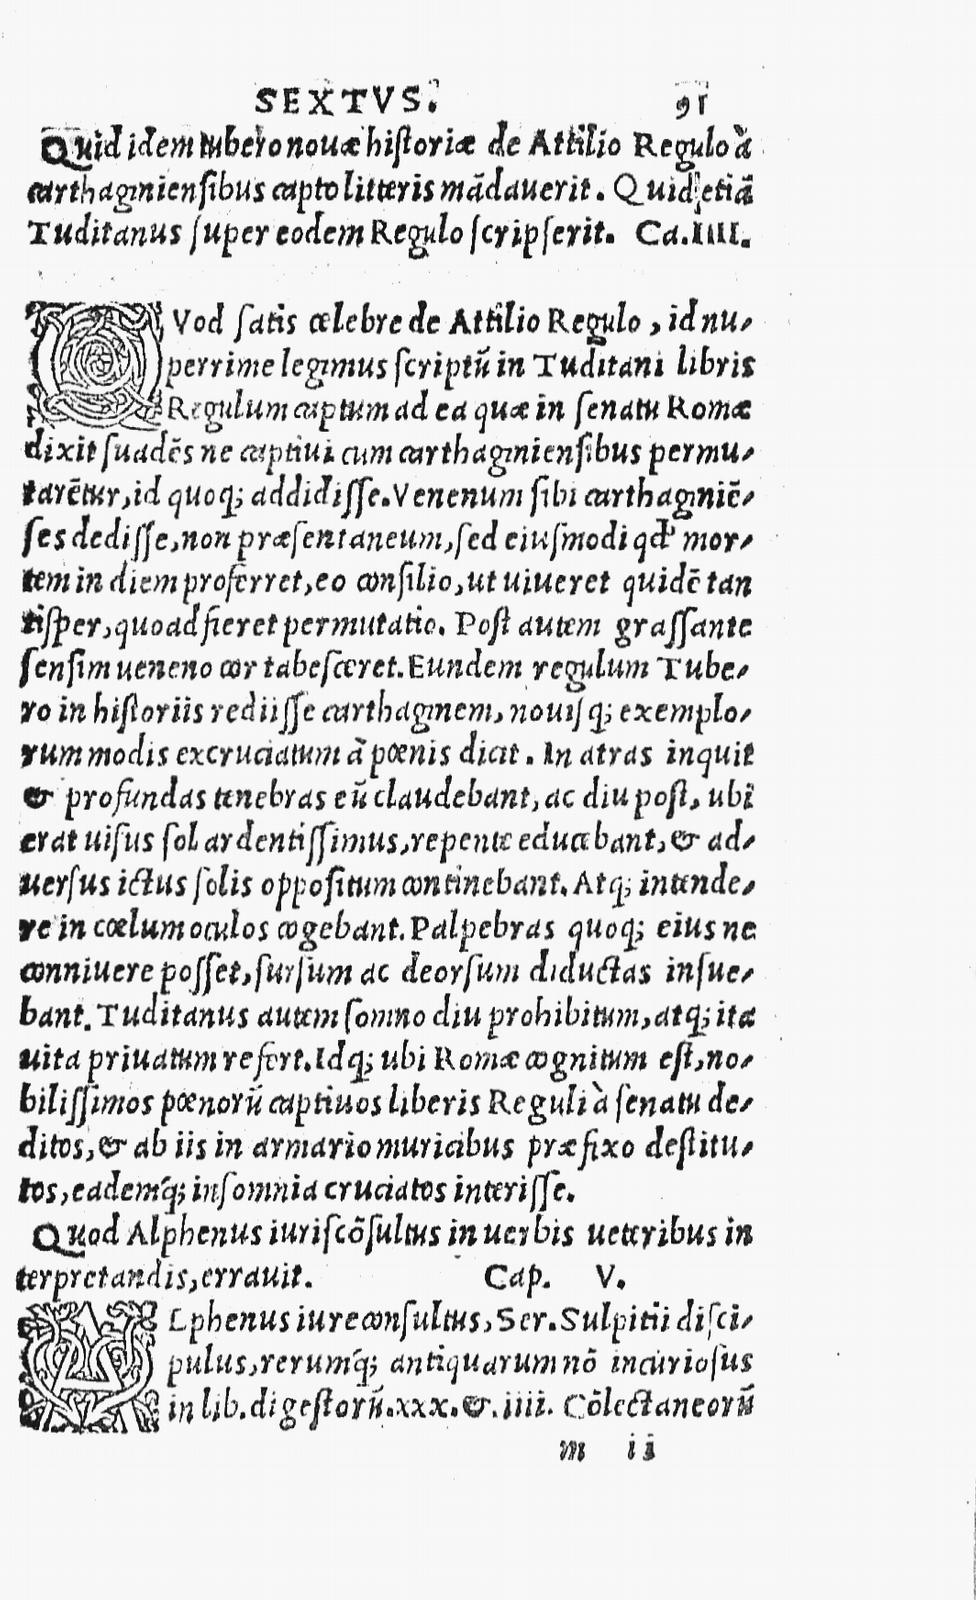 SEXTVS. 91
Quid idem tubero nouæ historiæ de Attilio Regulo à
carthaginiensibus capto litteris mādauerit. Quid etiā
Tuditanus super eodem Regulo scripserit. Ca. IIII.
QVod satis celebre de Attilio Regulo, id nu-
perrime legimus scriptū in Tuditani libris
Regulum captum ad ea quæ in senatu Romæ
dixit suadēs ne captiui cum carthaginiensibus permu-
tarētur, id quoq; addidisse. Venenum sibi carthaginiē-
ses dedisse, non præsentaneum, sed eiusmodi qđ mor-
tem in diem proferret, eo consilio, ut uiueret quidē tan
tisper, quoad fieret permutatio. Post autem grassante
sensim ueneno cor tabesceret. Eundem regulum Tube-
ro in historiis rediisse carthaginem, nouisq; exemplo-
rum modis excruciatum à pœnis dicit. In atras inquit
& profundas tenebras eū claudebant, ac diu post, ubi
erat uisus sol ardentissimus, repente educebant, & ad-
uersus ictus solis oppositum continebant. Atq; intende-
re in cœlum oculos cogebant. Palpebras quoq; eius ne
conniuere posset, sursum ac deorsum diductas insue-
bant. Tuditanus autem somno diu prohibitum, atq; ita
uita priuatum refert. Idq; ubi Romæ cognitum est, no-
bilissimos pœnorū captiuos liberis Reguli à senatu de-
ditos, & ab iis in armario muricibus præfixo destitu-
tos, eademq́; insomnia cruciatos interisse.
Quod Alphenus iuriscōsultus in uerbis ueteribus in
terpretandis, errauit. Cap. V.
ALphenus iureconsultus, Ser. Sulpitii disci-
pulus, rerumq́; antiquarum nō incuriosus
in lib. digestorū. xxx. & .iiii. Cōlectaneorū
m ii